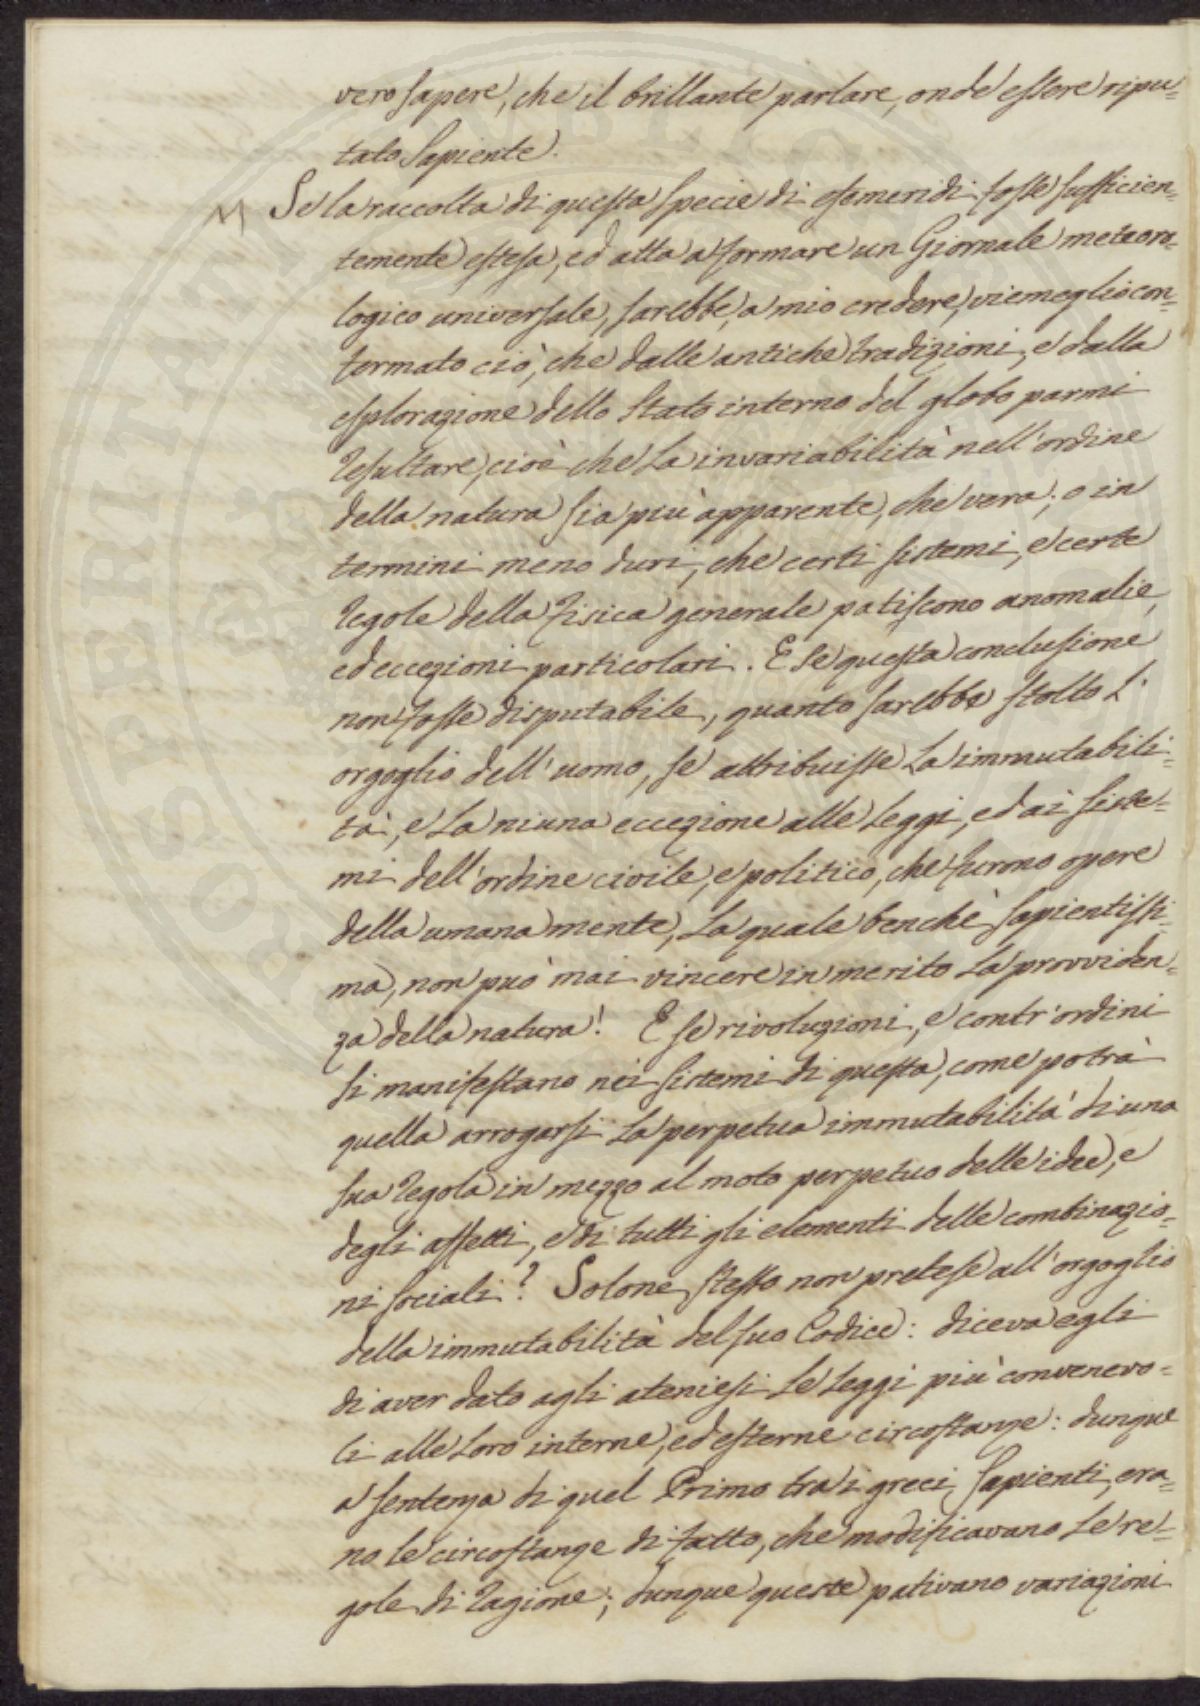 vero sapere, che il brillante parlare, onde essere ripu=
tato Sapiente.
Se la raccolta di questa specie di efemeridi fosse sufficien=
temente estesa, ed atta a formare un Giornale meteoro=
logico universale, sarebbe, a mio credere, viemeglio con=
fermato ciò, che dalle antiche tradizioni, e dalla
esplorazione dello Stato interno del globo parmi
resultare, cioè che la invariabilità nell'ordine
della natura sia più apparente, che vera; o in
termini meno duri, che certi sistemi, e certe
regole della Fisica generale patiscono anomalie,
ed eccezioni particolari. E se questa conclusione
non fosse disputabile, quanto sarebbe stolto l'
orgoglio dell'uomo, se attribuisse la immutabili=
tà, e la niuna eccezione alle Leggi, ed ai siste=
mi dell'ordine civile, e politico, che furono opere
della umana mente, la quale benchè sapientissi=
ma, non può mai vincere in merito la provviden=
za della natura! E se rivoluzioni, e contr'ordini
si manifestano nei sistemi di questa, come potrà
quella arrogarsi la perpetua immutabilità di una
sua regola in mezzo al moto perpetuo delle idee, e
degli affetti, e di tutti gli elementi delle combinazio=
ni sociali? Solone stesso non pretese all'orgoglio
della immutabilità del suo Codice: diceva egli
di aver dato agli ateniesi le Leggi più convenevo=
li alle loro interne, ed esterne circostanze: dunque
a sentenza di quel Primo tra i greci Sapienti, era=
no le circostanze di fatto, che modificavano le re=
gole di ragione; dunque queste pativano variazioni
PROSPERITATI PUBLICAE